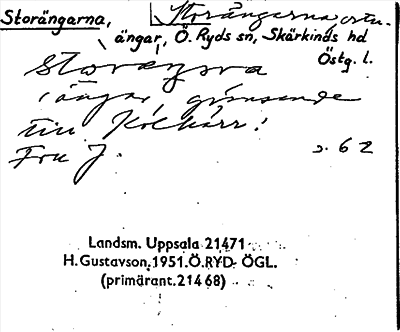 Storängarna,
Storängarna
ängar, Ö. Ryds sn, Skärkinds hd
Östg. l.
ängar, gränsande
till Kölkärr!
Fru J. s. 62
Landsm. Uppsala 21471
H. Gustavson.1951.Ö.RYD. ÖGL.
(primärant.21468)